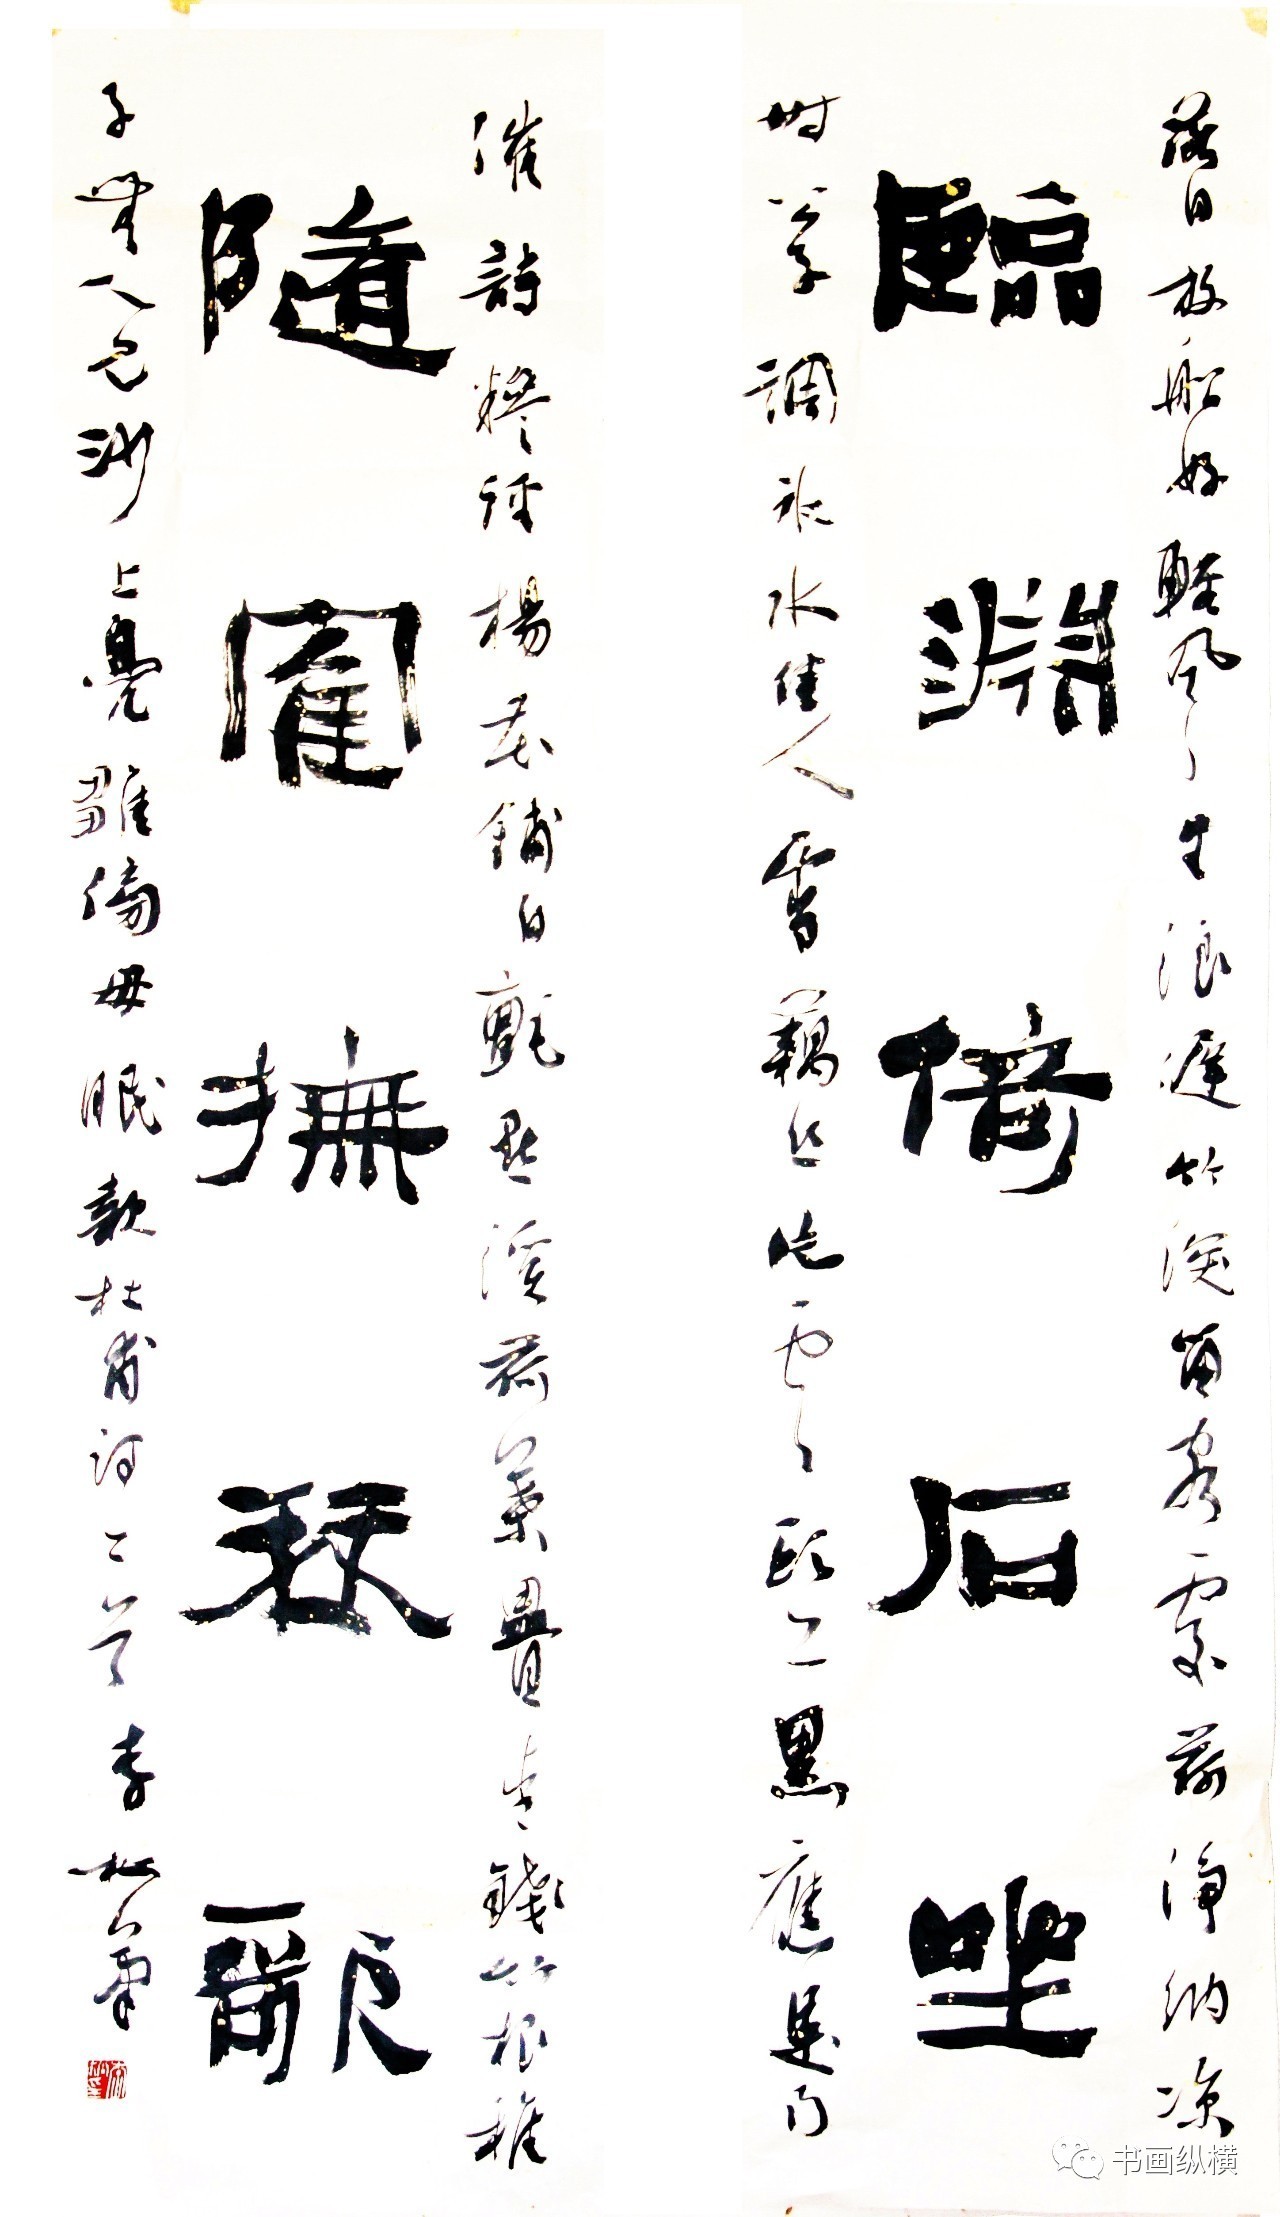 落日放船好輕風生浪遲竹深留客處荷淨納涼
臨淵倚石坐
時公子調冰水佳人雪藕絲片雲頭上黑應是雨
催詩糝徑楊花鋪白氈點溪荷葉疊青錢竹根稚
隨寉撫琴歌
子無人見沙上鳧雛傍母眠 杜甫詩二首 李松筆
书画纵横